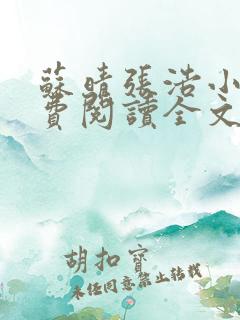 蘇晴張浩小
費閱讀全文
胡扣寶
未經同意禁止轉載